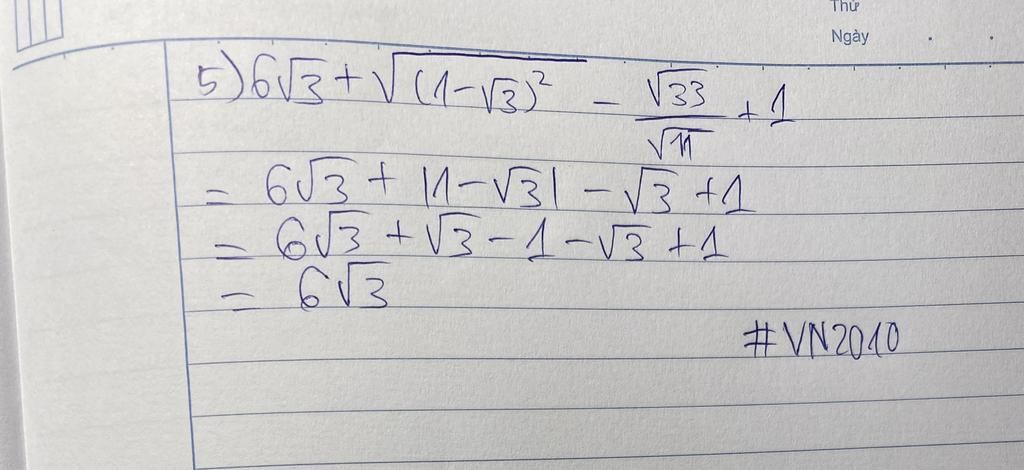 Thứ
Ngày
5) 6√3 + √(1-√3)² - √33/√11 + 1
= 6√3 + |1-√3| - √3 + 1
= 6√3 + √3 - 1 - √3 + 1
= 6√3
#VN2010